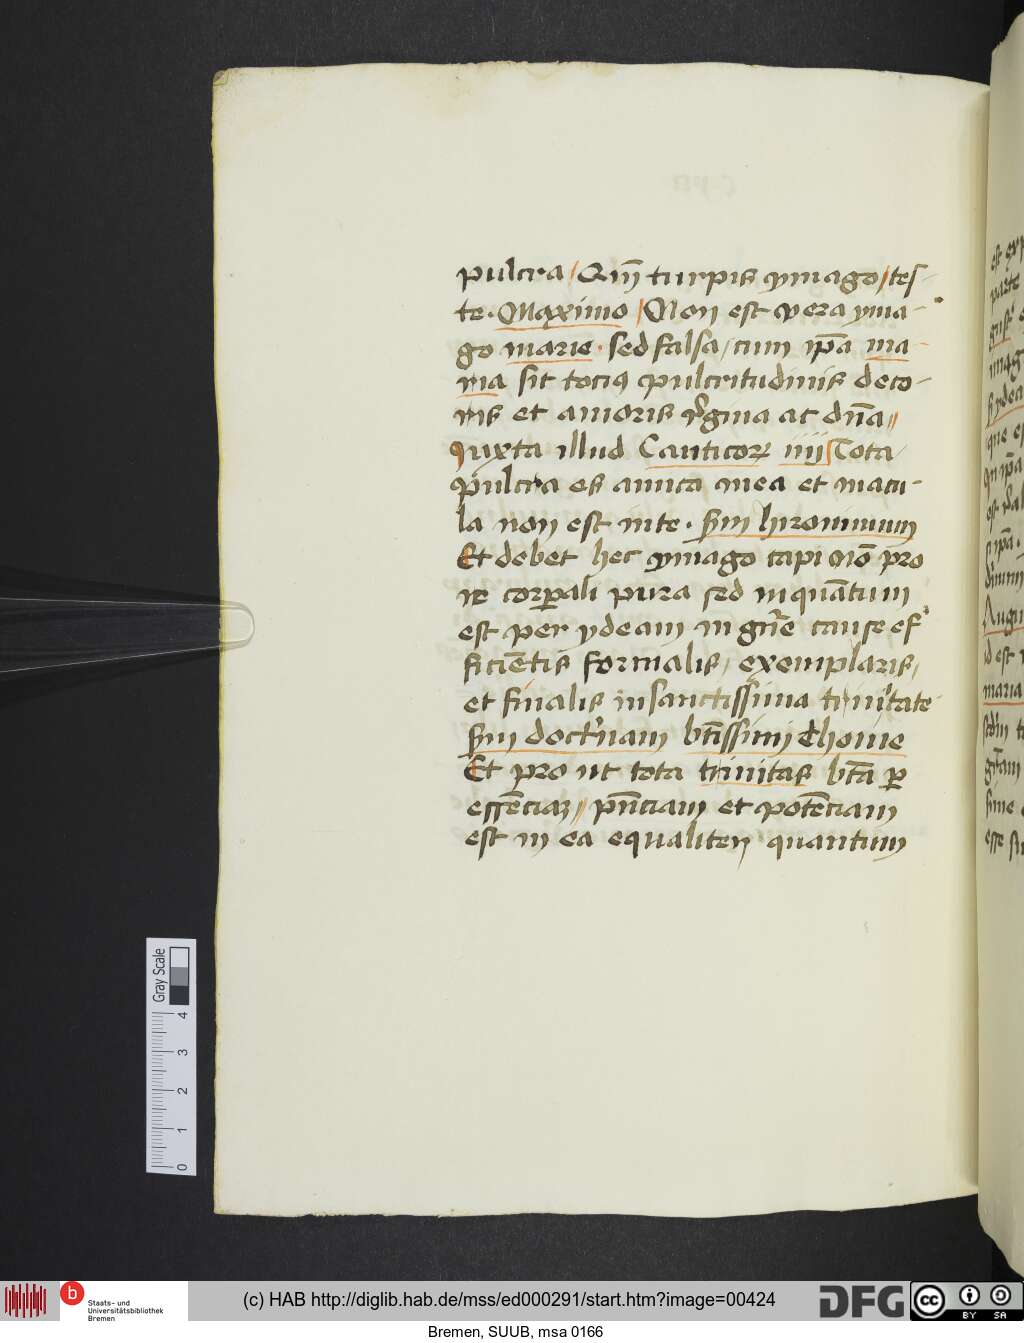 pulcra / Qm̄ turpis ymago / tes-
te. Maximo / Non est vera yma-
go marie. sed falsa / cum ip̄a ma-
ria sit tocius pulcritudinis deco-
ris et amoris v̓gina ac dn̄a //
Iuxta illud Canticoꝝ iiij Tota
pulcra es amica mea et macu-
la non est in te. Sm̄ hironimum
Et debet hec ymago capi nō pro
ve corꝑali pura sed inquātum
est per ydeam in gn̄e cause ef-
ficiētis formalis / exemplaris /
et finalis in sanctissima trinitate
Sm̄ doctⁱnam btīssimi Thome
Et pro ut tota trinitas btā ꝑ
essēciaꝫ // pn̄ciam et potēciam
est in ea equaliter quantum
Gray Scale
4
3
2
1
0
b
Staats- und
Universitätsbibliothek
Bremen
(c) HAB http://diglib.hab.de/mss/ed000291/start.htm?image=00424
DFG
cc
BY SA
Bremen, SUUB, msa 0166